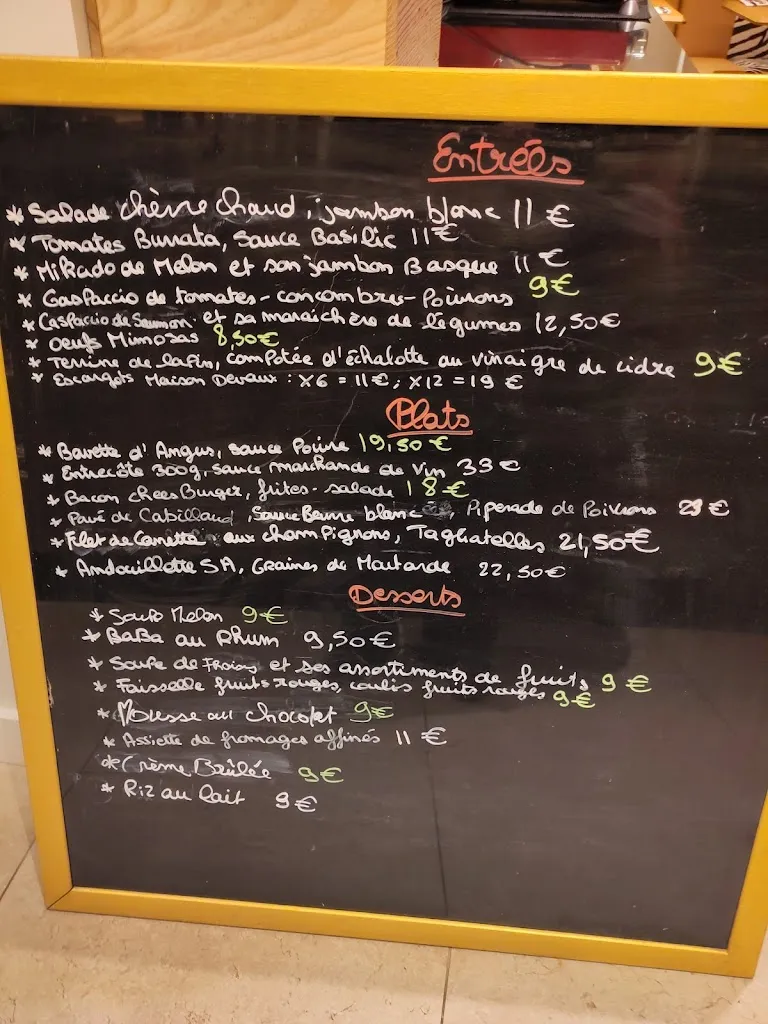 Entrées
* Salade chèvre chaud, jambon blanc 11 €
* Tomates Burrata, Sauce Basilic 11€
* Mikado de Melon et son jambon Basque 11 €
* Gaspaccio de tomates - concombres - Poivrons 9€
* Caspaccio de Saumon et sa maraichère de légumes 12,50€
* Oeufs Mimosas 8,50€
* Terrine de lapin, compotée d'échalotte au vinaigre de cidre 9€
* Escargots Maison Devaux : x6 = 11€ ; x12 = 19 €
Plats
* Bavette d'Angus, sauce Poivre 19,50 €
* Entrecôte 300g, sauce marchande de vin 33 €
* Bacon cheesBurger, frites - salade 18€
* Pavé de Cabillaud, Sauce Beurre blanc, Piperade de Poivrons €
* Filet de Canette aux champignons, Tagliatelles 21,50€
* Andouillette 5A, Graines de Moutarde 22,50€
Desserts
* Melon 9€
* BaBa au Rhum 9,50€
* Soupe de et ses assortiments de fruits 9€
* Faisselle fruits rouges, coulis fruits rouges 9€
* Mousse au chocolat 9€
* Assiette de fromages affinés 11 €
* Crème Brûlée 9€
* Riz au lait 9€